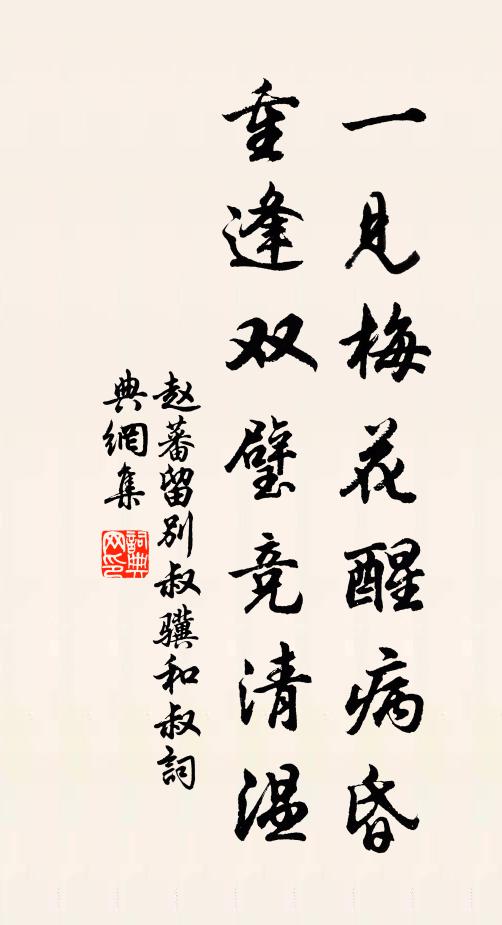 一见梅花醒病昏
重逢双璧竞清温
赵蕃留别叔骥和叔詞
典網集
詞典网印